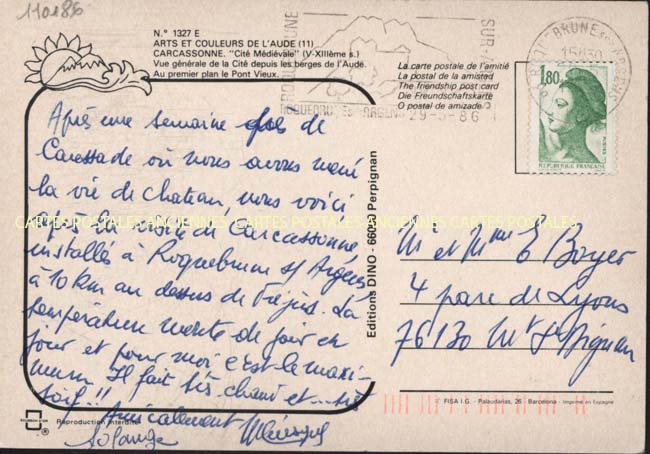 110886
N.° 1327 E
ARTS ET COULEURS DE L'AUDE (11)
CARCASSONNE. "Cité Médiévale" (V-XIIIème s.)
Vue générale de la Cité depuis les berges de l'Aude.
Au premier plan le Pont Vieux.
Après une semaine de
Caussade où nous avons mené
la vie de chateau, nous voici
après la visite de Carcassonne,
installés à Roquebrune s/ Argens
à 10 km au dessus de Fréjus. La
température monte de jour en
jour et pour moi c'est le maxi-
mum. Il fait très chaud et... très
soif!!
Amicalement
Solange
Reproduction interdite
Editions DINO - 66020 Perpignan
La carte postale de l'amitié
La postal de la amistad
The friendship post card
Die Freundschaftskarte
O postal de amizade
ROQUEBRUNE
SUR
ROQUEBRUNE S/ARGENS
29-5-86
15H30
1,80
REPUBLIQUE FRANÇAISE
M et Mme E Boyer
4 parc de Lyons
76130 Mt St Aignan
© FISA I.G. - Palaudarias, 26 - Barcelona - Imprimé en Espagne
CARTES POSTALES ANCIENNES CARTES POSTALES ANCIENNES CARTES POSTALES